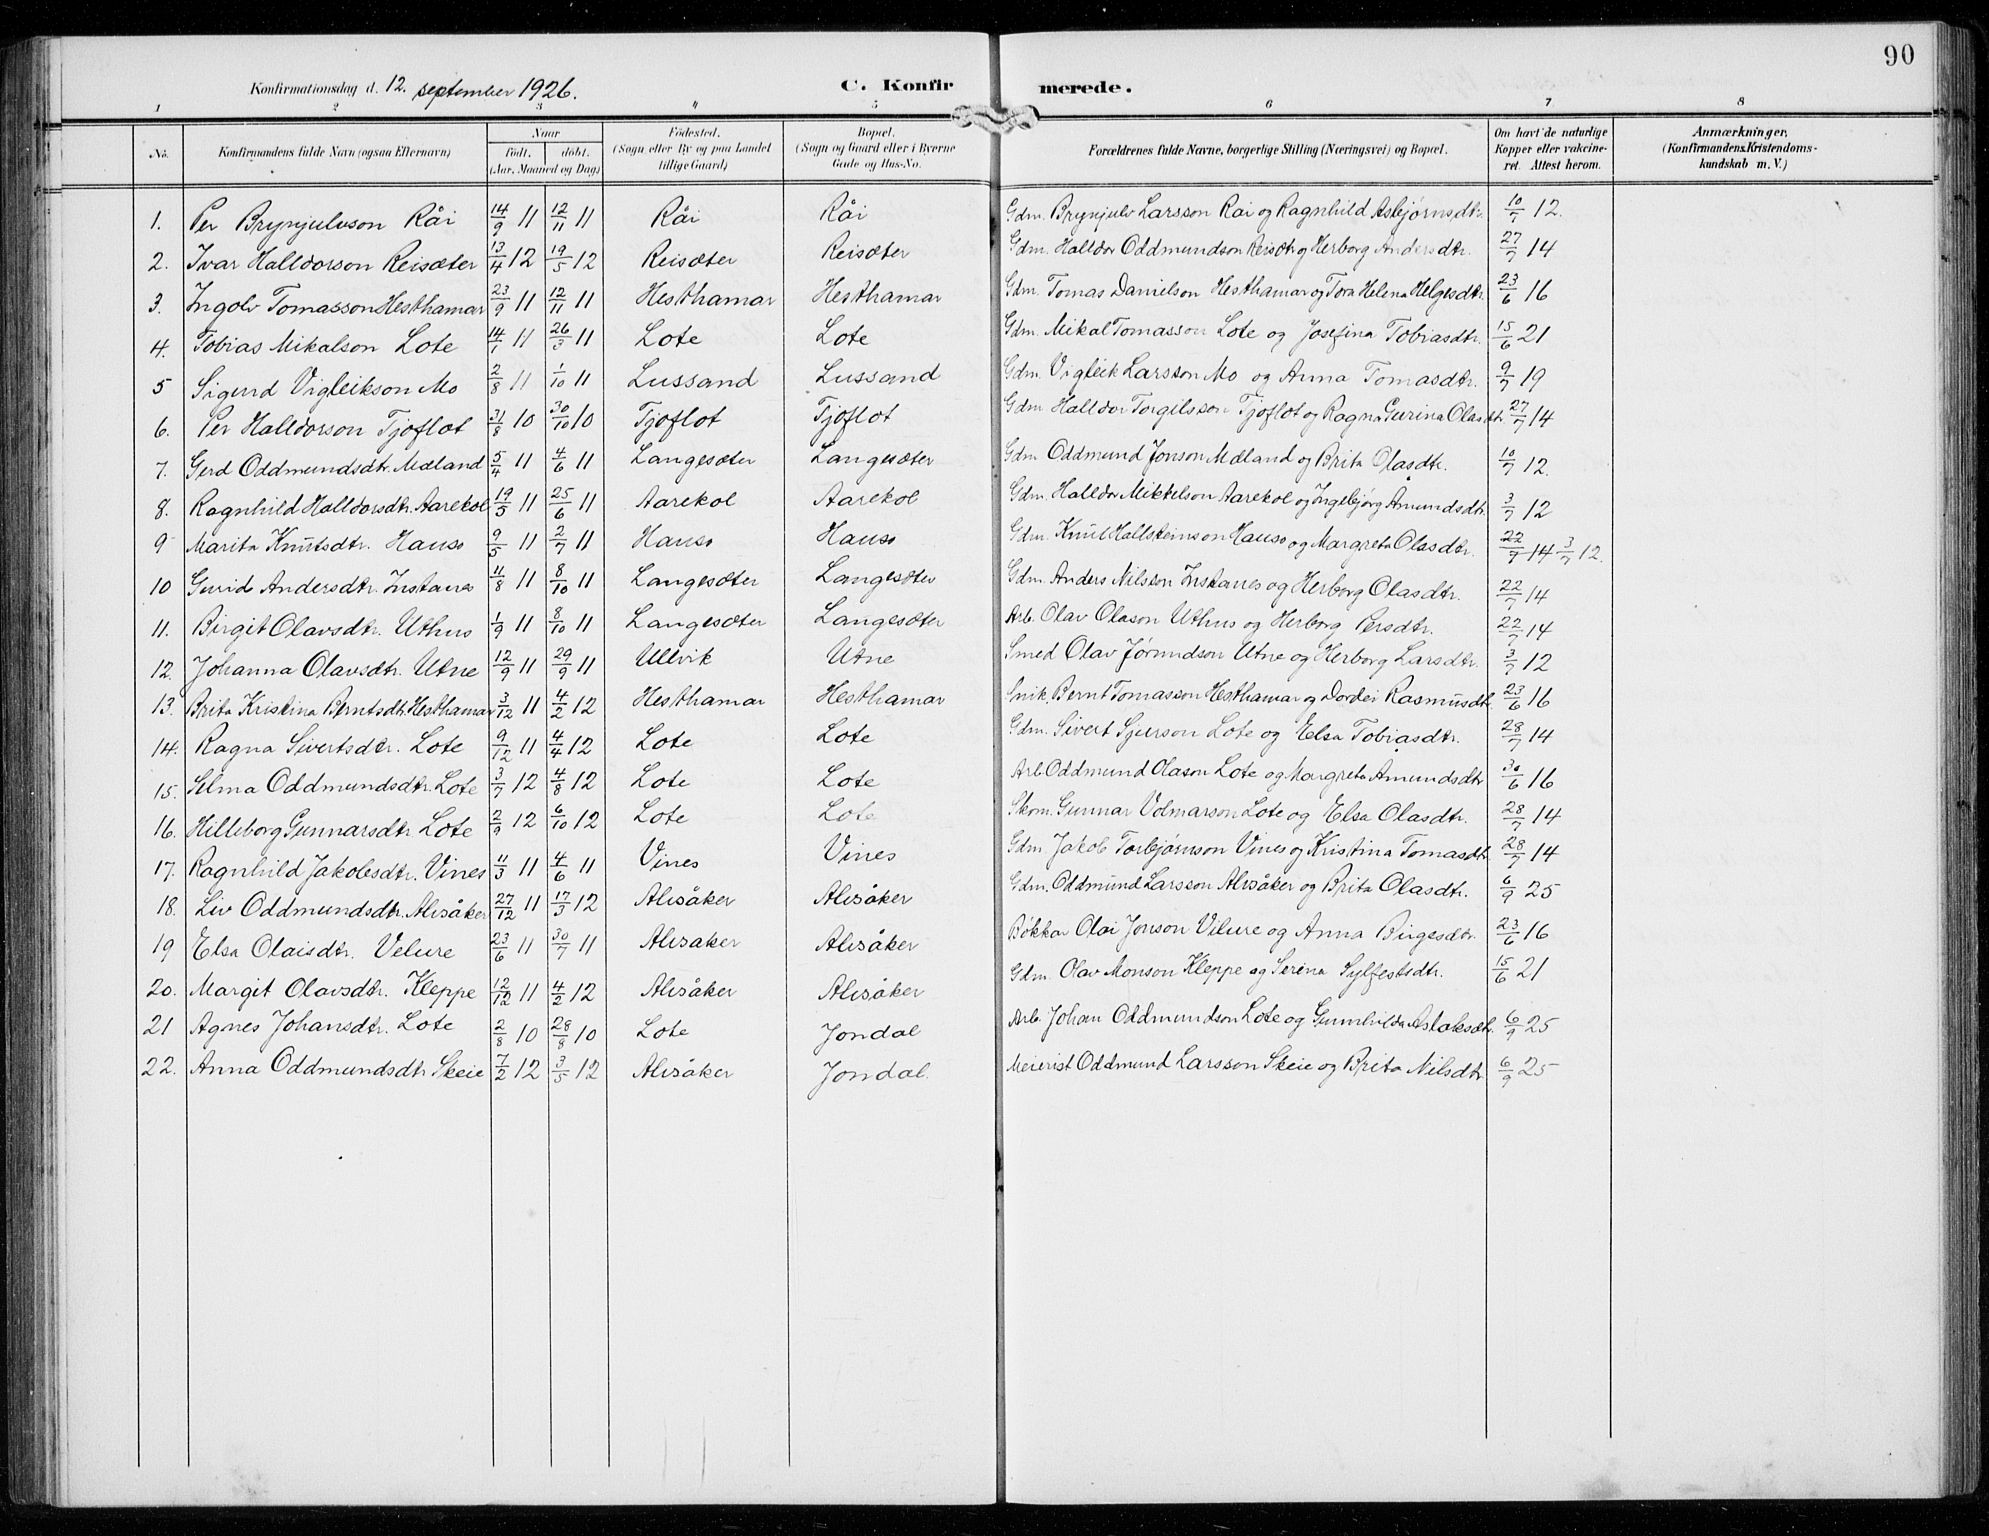 90
Konfirmationsdag d. 12. september 1926. C. Konfirmerede.
1 2 3 4 5 6 7 8
No. Konfirmandens fulde Navn (ogsaa Efternavn) Naar født. døbt. (Aar, Maaned og Dag) Fødested. (Sogn eller By og paa Landet tillige Gaard) Bopæl. (Sogn og Gaard eller i Byerne Gade og Hus-No. Forældrenes fulde Navne, borgerlige Stilling (Næringsvei) og Bopæl. Om havt de naturlige Kopper eller vakcineret. Attest herom. Anmærkninger, (Konfirmandens Kristendomskundskab m. V.)
1. Per Brynjulvson Råi 14/9 11 12/11 11 Råi Råi Gdm. Brynjulv Larsson Råi og Ragnhild Asbjørnsdtr. 10/7 12.
2. Ivar Halldorson Reisæter 13/4 12 19/5 12 Reisæter Reisæter Gdm. Halldor Oddmundson Reisæt. og Herborg Andersdtr. 27/7 14
3. Ingolv Tomasson Hesthamar 23/9 11 12/11 11 Hesthamar Hesthamar Gdm. Tomas Danielson Hesthamar og Tora Helena Helgesdtr. 23/6 16
4. Tobias Mikalson Lote 14/1 11 26/3 11 Lote Lote Gdm. Mikal Tomasson Lote og Josefina Tobiasdtr. 15/6 21
5 Sigurd Vigleikson Mo 2/8 11 1/10 11 Lussand Lussand Gdm. Vigleik Larsson Mo og Anna Tomasdtr. 9/7 19
6. Per Halldorson Tjoflot 31/8 10 30/10 10 Tjoflot Tjoflot Gdm Halldor Torgilsson Tjoflot og Ragna Gurina Olasdtr. 27/7 14
7. Gerd Oddmundsdtr. Mæland 5/4 11 4/6 11 Langesæter Langesæter Gdm Oddmund Jonson Mæland og Brita Olasdtr. 10/7 12.
8. Ragnhild Halldorsdtr. Aarekol 19/5 11 25/6 11 Aarekol Aarekol Gdm. Halldor Mikkelson Aarekol og Ingebjørg Amundsdtr. 3/7 12
9 Marita Knutsdtr. Hauso 9/5 11 2/7 11 Hauso Hauso Gdm. Knut Hallsteinson Hauso og Margreta Olasdtr. 22/7 14 3/7 12.
10 Gurid Andersdtr. Instanes 11/8 11 8/10 11 Langesæter Langesæter Gdm. Anders Nilsson Instanes og Herborg Olasdtr. 22/7 14
11. Birgit Olavsdtr. Uthus 1/9 11 8/10 11 Langesæter Langesæter Arb. Olav Olason Uthus og Herborg Persdtr. 22/7 14
12. Johanna Olavsdtr. Utne 12/9 11 29/9 11 Ullvik Utne Smed Olav Jørundson Utne og Herborg Larsdtr. 3/7 12
13. Brita Kristina Berntsdtr. Hesthamar 3/12 11 4/2 12 Hesthamar Hesthamar Snik. Bernt Tomasson Hesthamar og Dordei Rasmusdtr. 23/6 16
14. Ragna Sivertsdtr. Lote 9/12 11 4/4 12 Lote Lote Gdm. Sivert Sjurson Lote og Elsa Tobiasdtr. 28/7 14
15. Selma Oddmundsdtr. Lote 3/7 12 4/8 12 Lote Lote Arb. Oddmund Olason Lote og Margreta Amundsdtr 30/6 16
16. Hilleborg Gunnarsdtr Lote 2/9 12 6/10 12 Lote Lote Skom. Gunnar Volmarson Lote og Elsa Olasdtr. 28/7 14
17. Ragnhild Jakobsdtr. Vines 11/3 11 4/6 11 Vines Vines Gdm. Jakob Torbjørnson Vines og Kristina Tomasdtr 28/7 14
18. Liv Oddmundsdtr. Alvsåker 27/12 11 17/3 12 Alvsåker Alvsåker Gdm. Oddmund Larsson Alvsåker og Brita Olasdtr. 6/9 25
19 Elsa Olaisdtr. Velure 23/6 11 30/7 11 Alvsaker Alvsåker Bøkkar Olai Jonson Velure og Anna Birgesdtr. 23/6 16
20. Margit Olavsdtr. Kleppe 12/12 11 4/2 12 Alvsåker Alvsåker Gdm. Olav Monson Kleppe og Serina Sylfestsdtr. 15/6 21
21 Agnes Johansdtr. Lote 2/8 10 28/8 10 Lote Jondal Arb. Johan Oddmundson Lote og Gunnhilda Aslaksdtr. 6/9 25
22. Anna Oddmundsdtr Skeie 7/2 12 3/5 12 Alvsåker Jondal. Meierist Oddmund Larsson Skeie og Brita Nilsdtr. 6/9 25